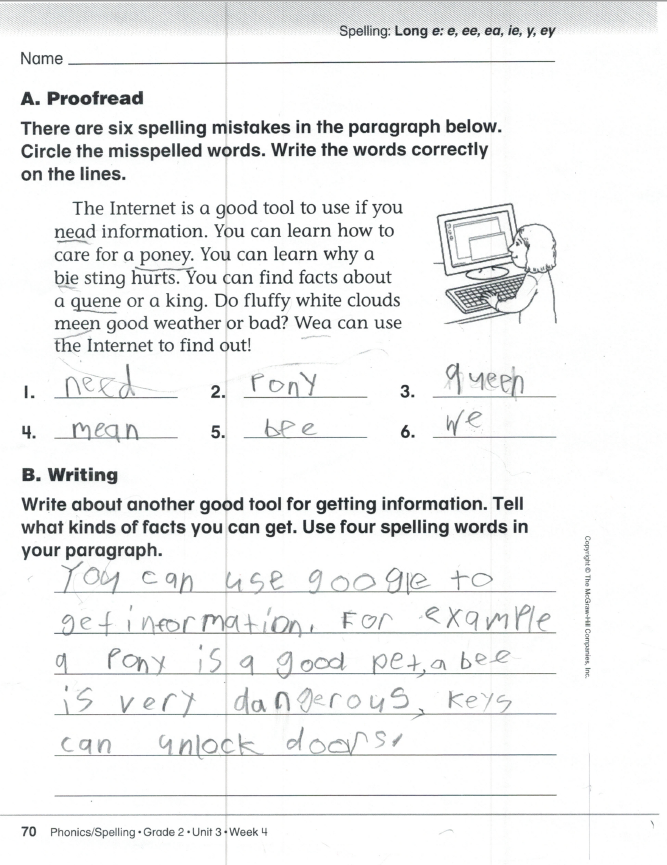 Spelling: Long e: e, ee, ea, ie, y, ey
Name
A. Proofread
There are six spelling mistakes in the paragraph below.
Circle the misspelled words. Write the words correctly
on the lines.
The Internet is a good tool to use if you
nead information. You can learn how to
care for a poney. You can learn why a
bie sting hurts. You can find facts about
a quene or a king. Do fluffy white clouds
meen good weather or bad? Wea can use
the Internet to find out!
1. need 2. Pony 3. queen
4. mean 5. bee 6. we
B. Writing
Write about another good tool for getting information. Tell
what kinds of facts you can get. Use four spelling words in
your paragraph.
You can use google to
get information. For example
a Pony is a good pet, a bee
is very dangerous, keys
can unlock doors.
Copyright © The McGraw-Hill Companies, Inc.
70 Phonics/Spelling • Grade 2 • Unit 3 • Week 4